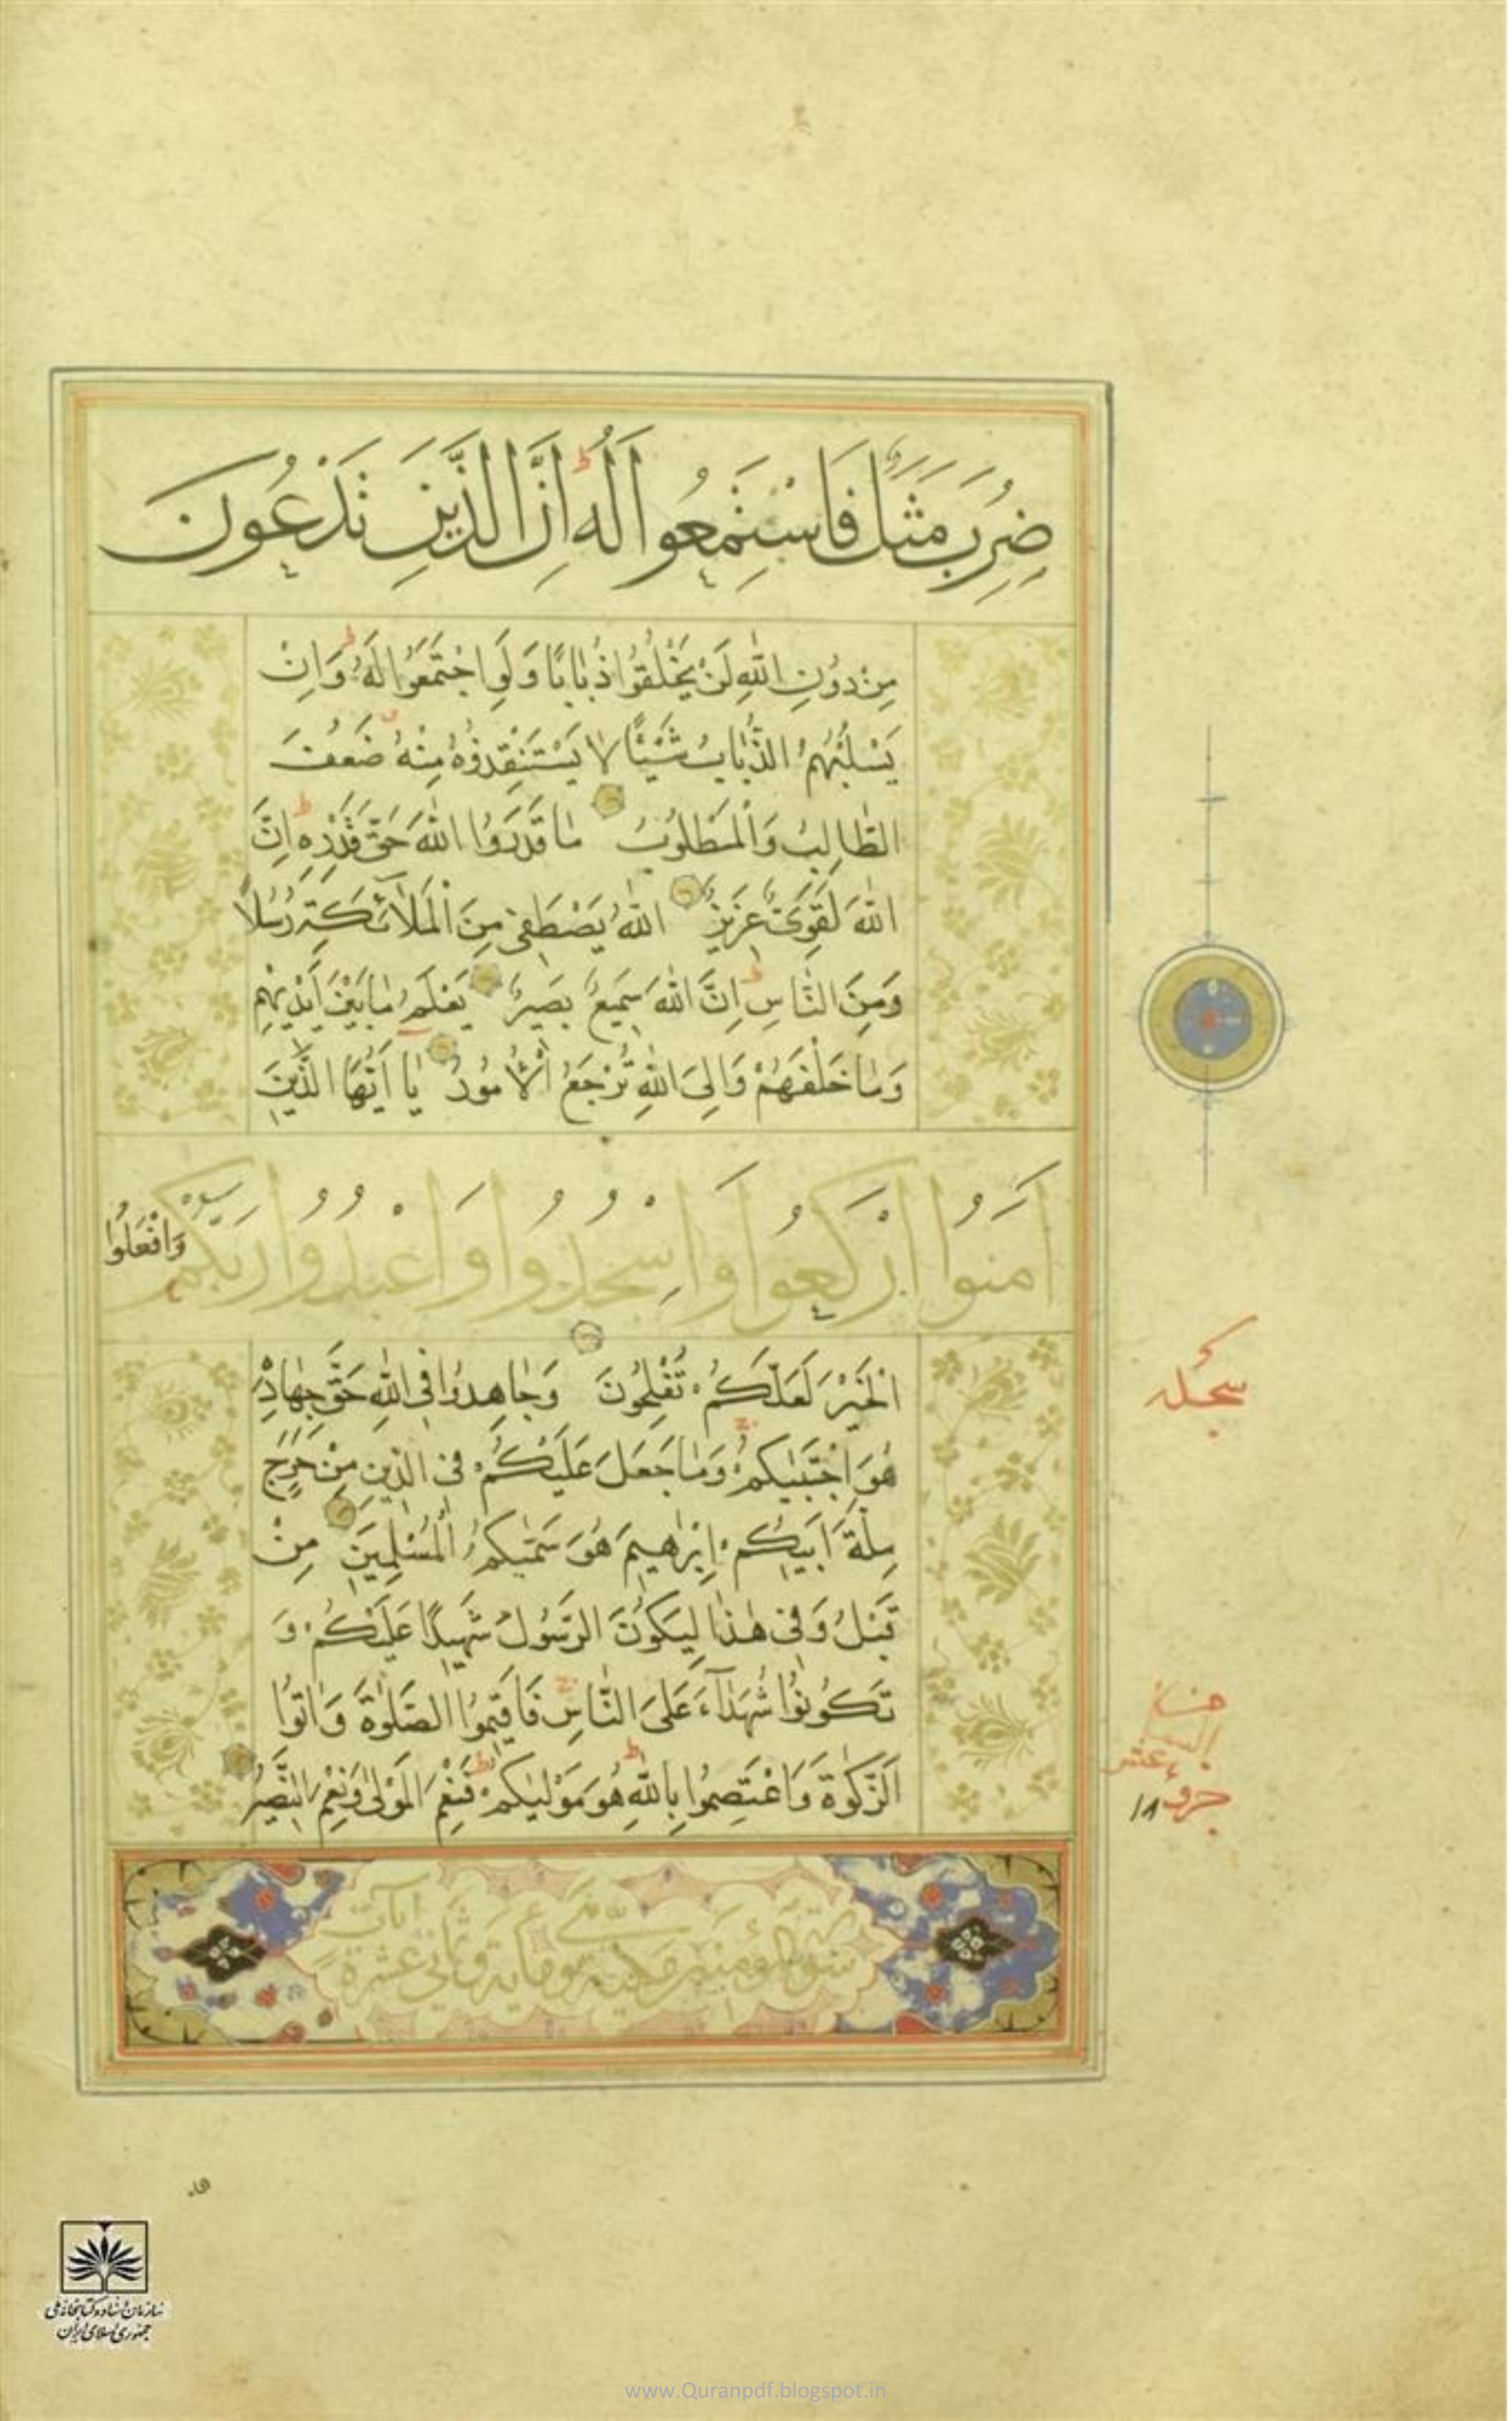 ضُرِبَ مَثَلٌ فَاسْتَمِعُوا لَهُ ط اِنَّ الَّذِينَ تَدْعُونَ
مِنْ دُونِ اللّٰهِ لَنْ يَخْلُقُوا ذُبٰابًا وَلَوِ اجْتَمَعُوا لَهُ ط وَاِنْ
يَسْلُبْهُمُ الذُّبٰابُ شَيْئًا لٰا يَسْتَنْقِذُوهُ مِنْهُ ضَعُفَ
الطّٰالِبُ وَالْمَطْلُوبُ مٰا قَدَرُوا اللّٰهَ حَقَّ قَدْرِهِ ط اِنَّ
اللّٰهَ لَقَوِىٌّ عَزِيزٌ اللّٰهُ يَصْطَفِى مِنَ الْمَلٰآئِكَةِ رُسُلًا
وَمِنَ النّٰاسِ ط اِنَّ اللّٰهَ سَمِيعٌ بَصِيرٌ يَعْلَمُ مٰا بَيْنَ اَيْدِيهِمْ
وَمٰا خَلْفَهُمْ وَاِلَى اللّٰهِ تُرْجَعُ الْاُمُورُ يٰا اَيُّهَا الَّذِينَ
اٰمَنُوا ارْكَعُوا وَاسْجُدُوا وَاعْبُدُوا رَبَّكُمْ وَافْعَلُوا
الْخَيْرَ لَعَلَّكُمْ تُفْلِحُونَ وَجٰاهِدُوا فِى اللّٰهِ حَقَّ جِهٰادِهِ
هُوَ اجْتَبٰيكُمْ وَمٰا جَعَلَ عَلَيْكُمْ فِى الدِّينِ مِنْ حَرَجٍ
مِلَّةَ اَبِيكُمْ اِبْرٰهِيمَ هُوَ سَمّٰيكُمُ الْمُسْلِمِينَ مِنْ
قَبْلُ وَفِى هٰذٰا لِيَكُونَ الرَّسُولُ شَهِيدًا عَلَيْكُمْ وَ
تَكُونُوا شُهَدٰآءَ عَلَى النّٰاسِ فَاَقِيمُوا الصَّلٰوةَ وَاٰتُوا
الزَّكٰوةَ وَاعْتَصِمُوا بِاللّٰهِ ط هُوَ مَوْلٰيكُمْ ط فَنِعْمَ الْمَوْلٰى وَنِعْمَ النَّصِيرُ
سورة المؤمنين مكية وهى مائة وثمانى عشرة آيات
سجده
عشر
جزو ١٨
سازمان اسناد و کتابخانه ملی
جمهوری اسلامی ایران
www.Quranpdf.blogspot.in